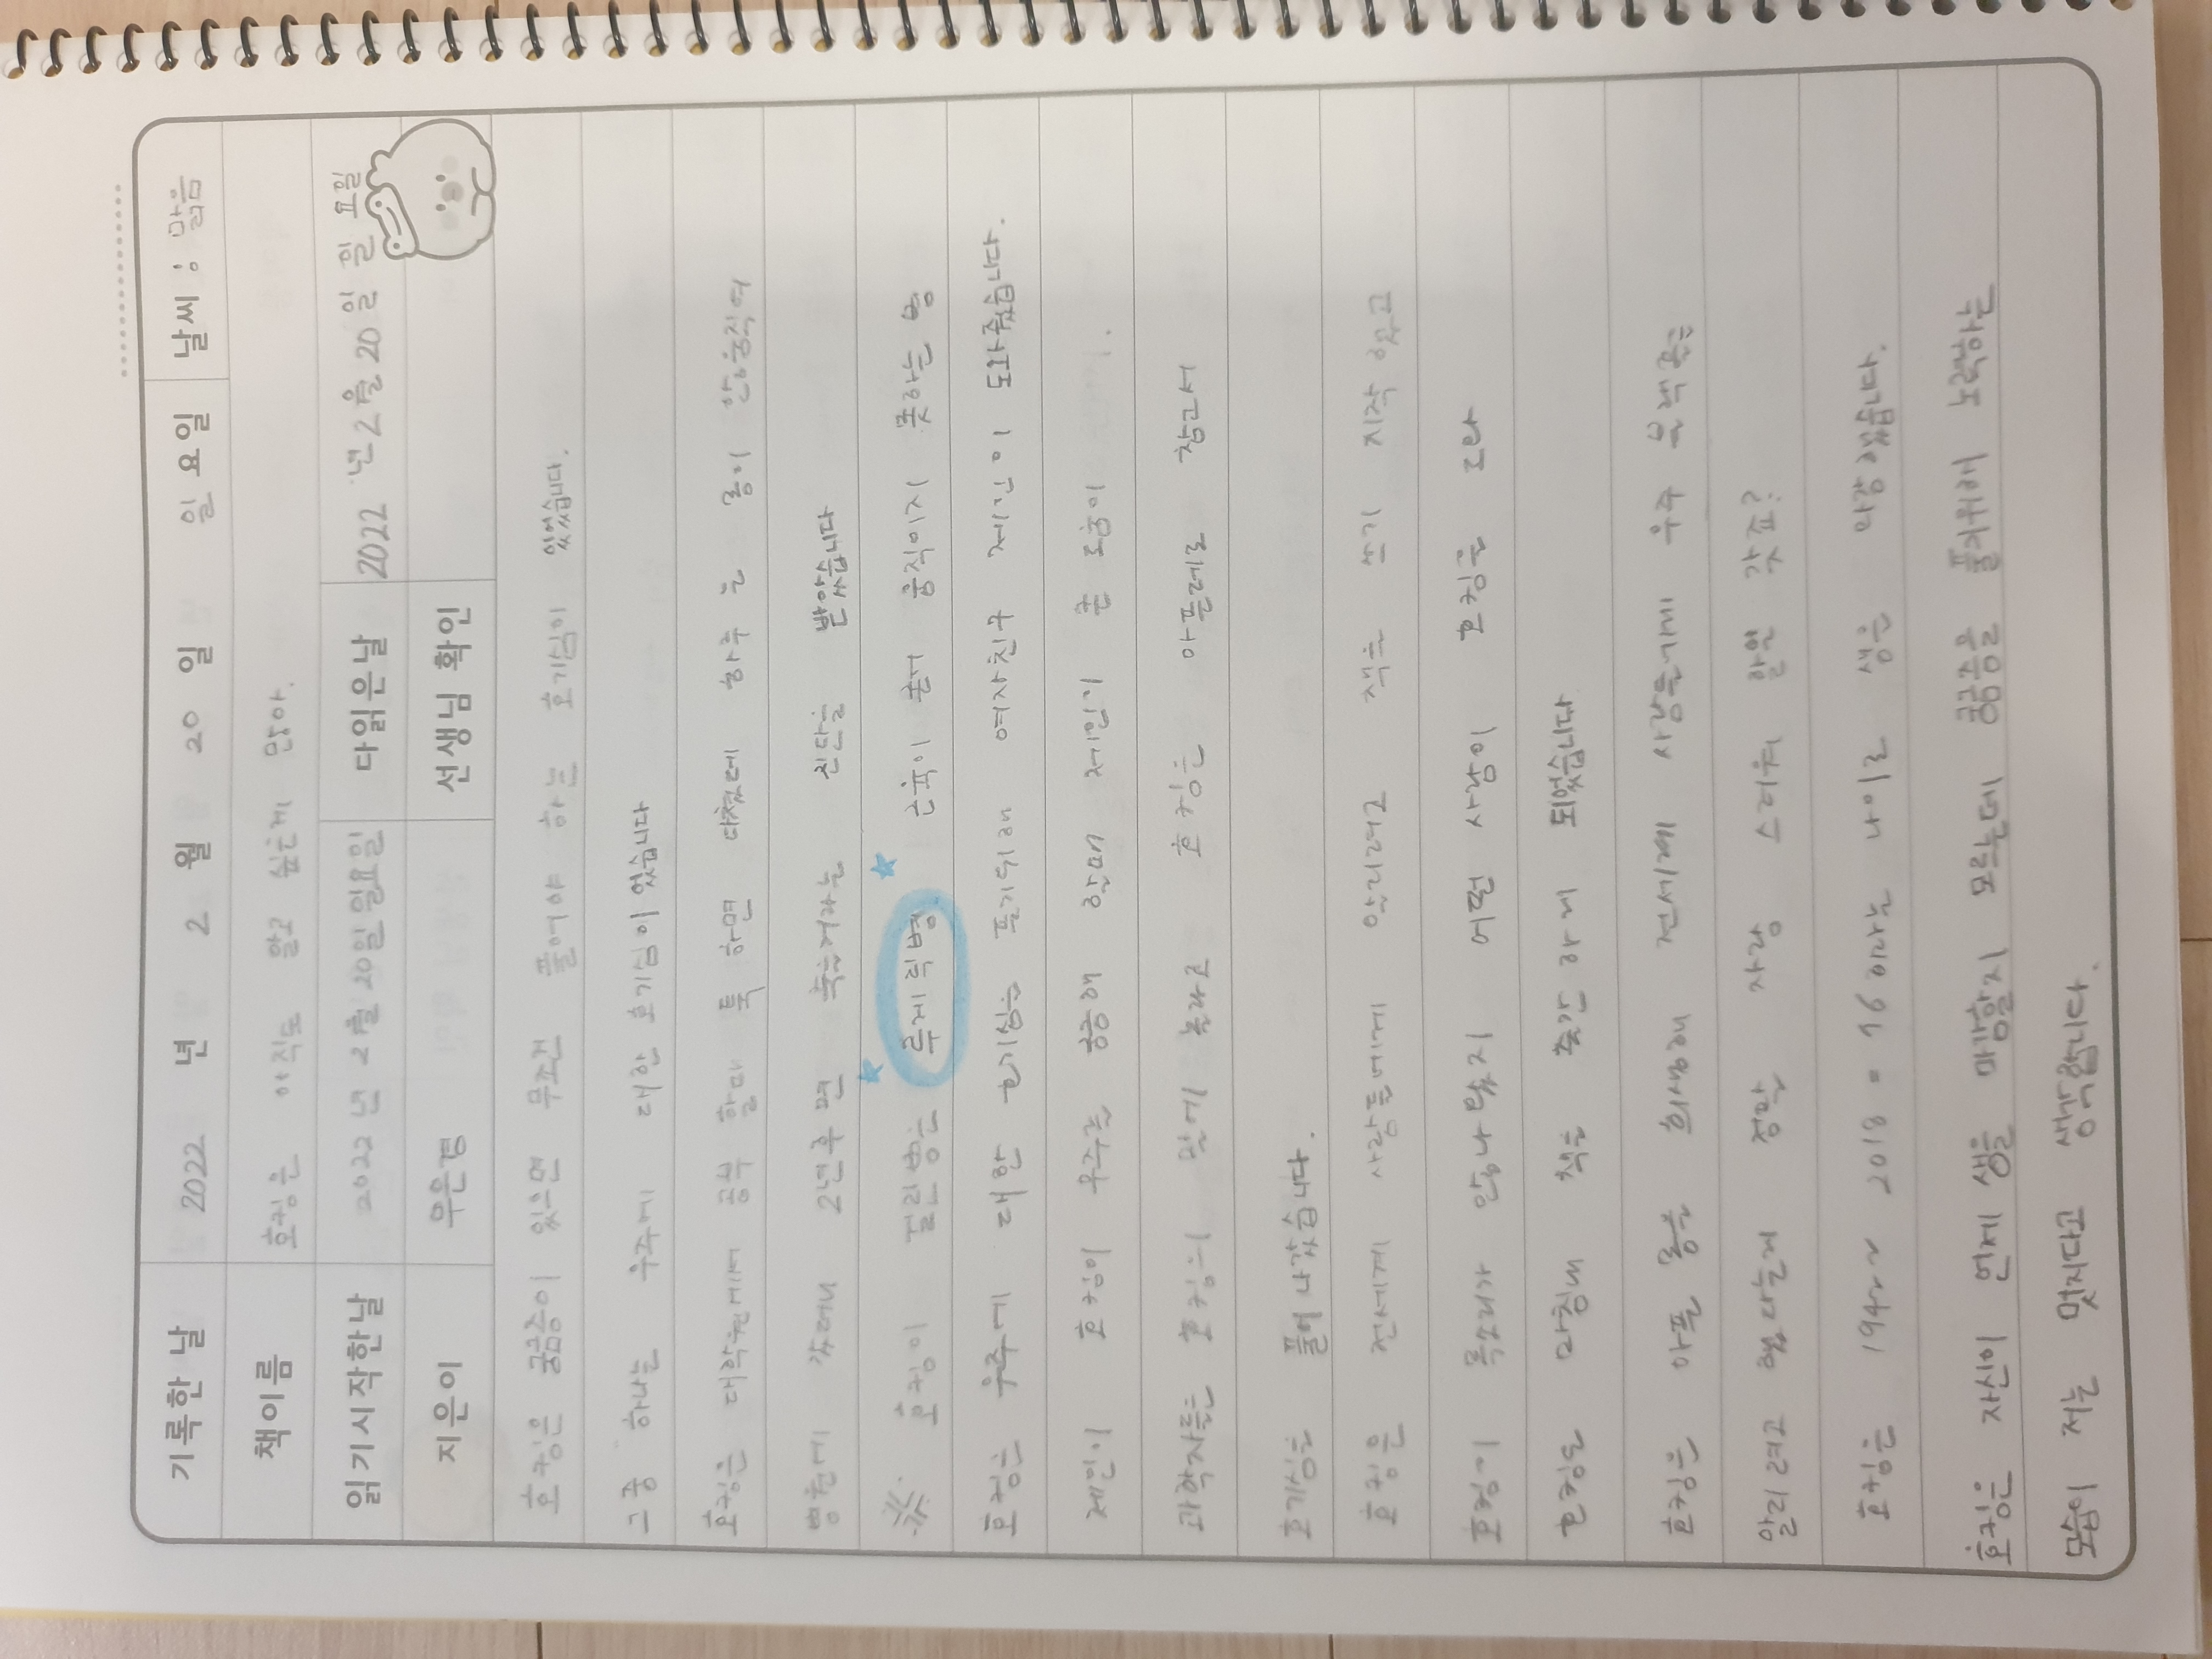 기록한 날 2022 년 2 월 20 일 일 요일 날씨 : 맑음
책이름 호킹은 아직도 알고 싶은게 많아.
읽기시작한날 2022 년 2월 20일 일요일 다읽은날 2022 년 2월 20일 일 요일
지은이 우은경 선생님 확인
호킹은 궁금증이 있으면 무조건 풀어야 하는 호기심이 있었습니다.
그중 하나는 우주에 대한 호기심이 었습니다
호킹은 대학원에서 공부 할때 툭 하면 다쳤는데 하루 는 몸이 안움직여
병원에 갔더니 2년후 면 죽을거라는 진단을 받았습니다
※ 호킹이 걸린병은 루게릭병. 근육이 굳어 움직이지 못하는 병
호킹은 우주에 대한 호기심을 풀기위해 여자친구 제인이 도와줬습니다.
제인이 호킹이 우주를 궁금해 할때 제인이 큰 도움이
과학자들은 호킹의 말에 놀라고 호킹은 아픈데도 참고서
호기심을 풀어 나갔습니다.
호킹은 전세계 사람들에게 알리려고 책을 쓰기 시작 했고
호킹이 목소리가 안나 왔지 어떤 사람이 호킹을 도와
호킹도 마침내 책을 출간 하게 되었습니다
호킹은 아픈 몸을 희생해 전세계 사람들에게 우주 블랙홀을
알리려고 했다는게 정말 자랑 스러워 할일 같죠?
호킹은 1942~ 2018 = 76 이라는 나이로 생을 마감 했습니다.
호킹은 자신이 언제 생을 마감할지 모르는데 궁금증을 풀기위해 노력하는
모습이 저는 멋지다고 생각합니다.